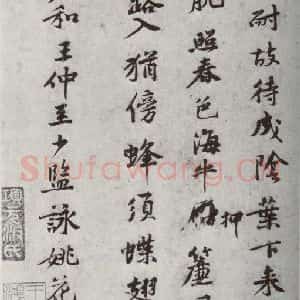 耐故待成陰葉下来
肌照春色海牛押簾
路入猶傍蜂須蝶翅
和王仲至少監詠姚花
Shufawang.Cn